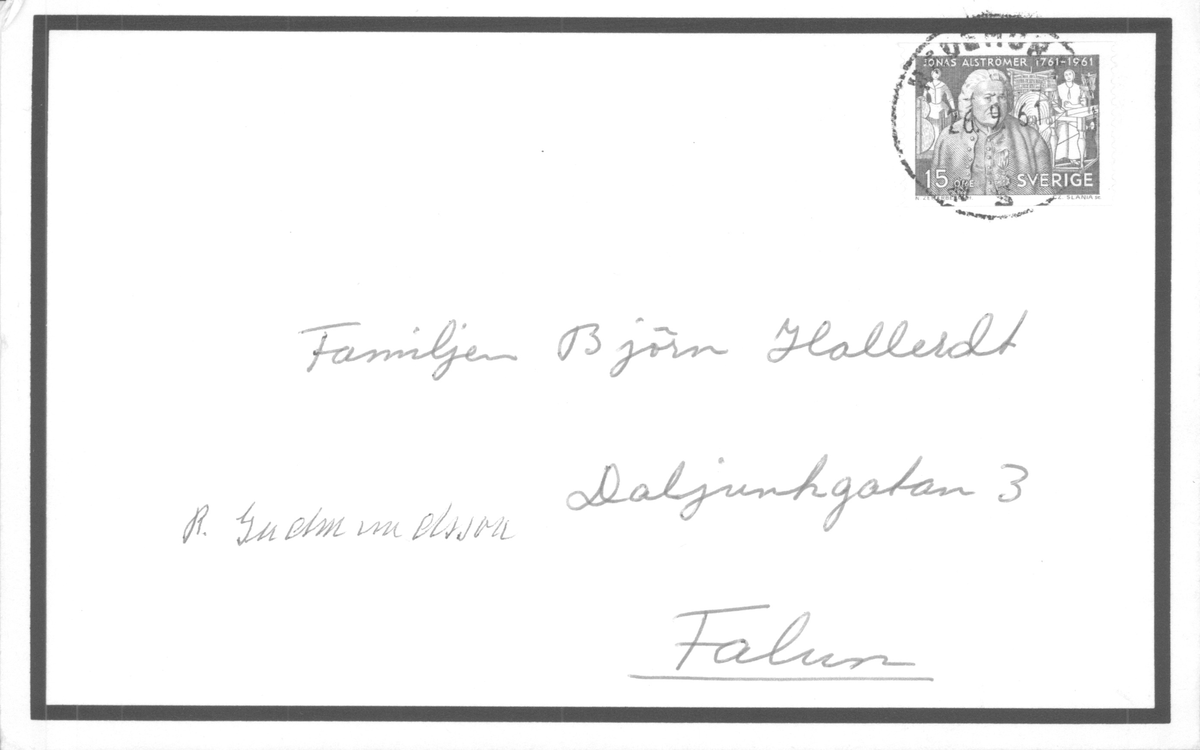 JONAS ALSTRÖMER 1761-1961
26 9 61
15 ÖRE SVERIGE
CZ. SLANIA SC.
Familjen Björn Hallerdt
Daljunkgatan 3
R. Gudmundsson
Falun